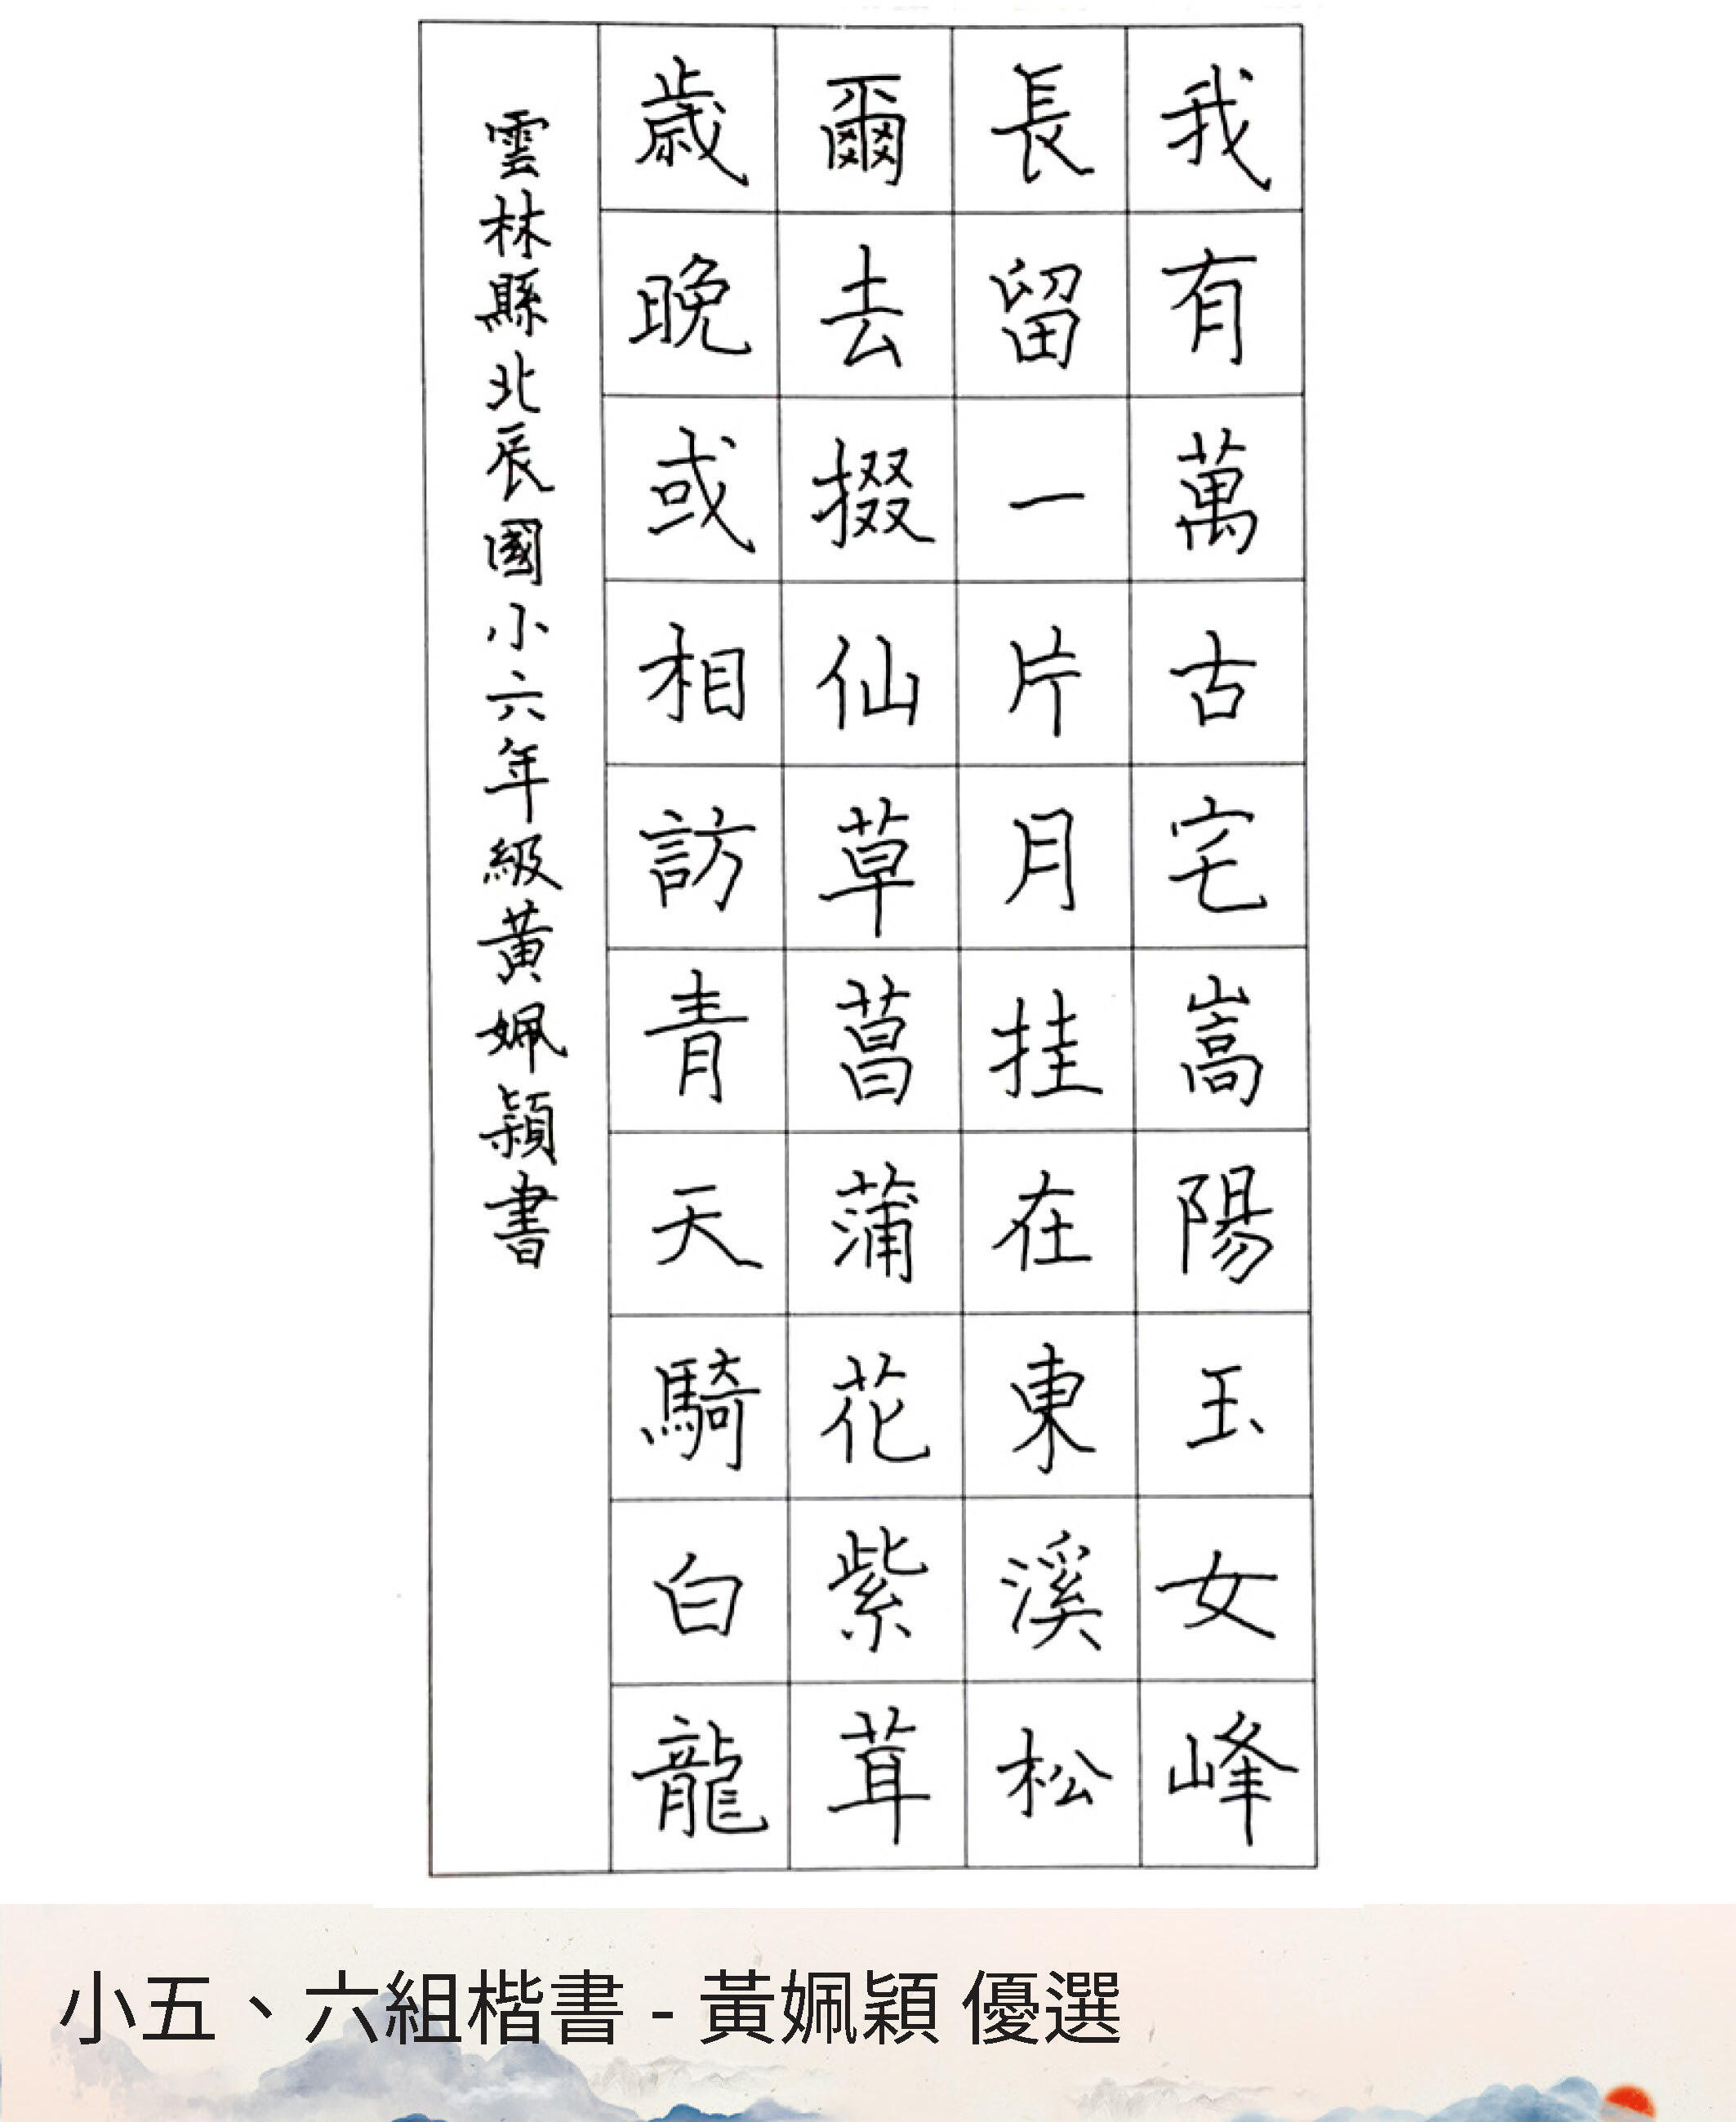 我有萬古宅嵩陽玉女峰
長留一片月挂在東溪松
爾去掇仙草菖蒲花紫茸
歲晚或相訪青天騎白龍
雲林縣北辰國小六年級黃姵穎書
小五、六組楷書 - 黃姵穎 優選